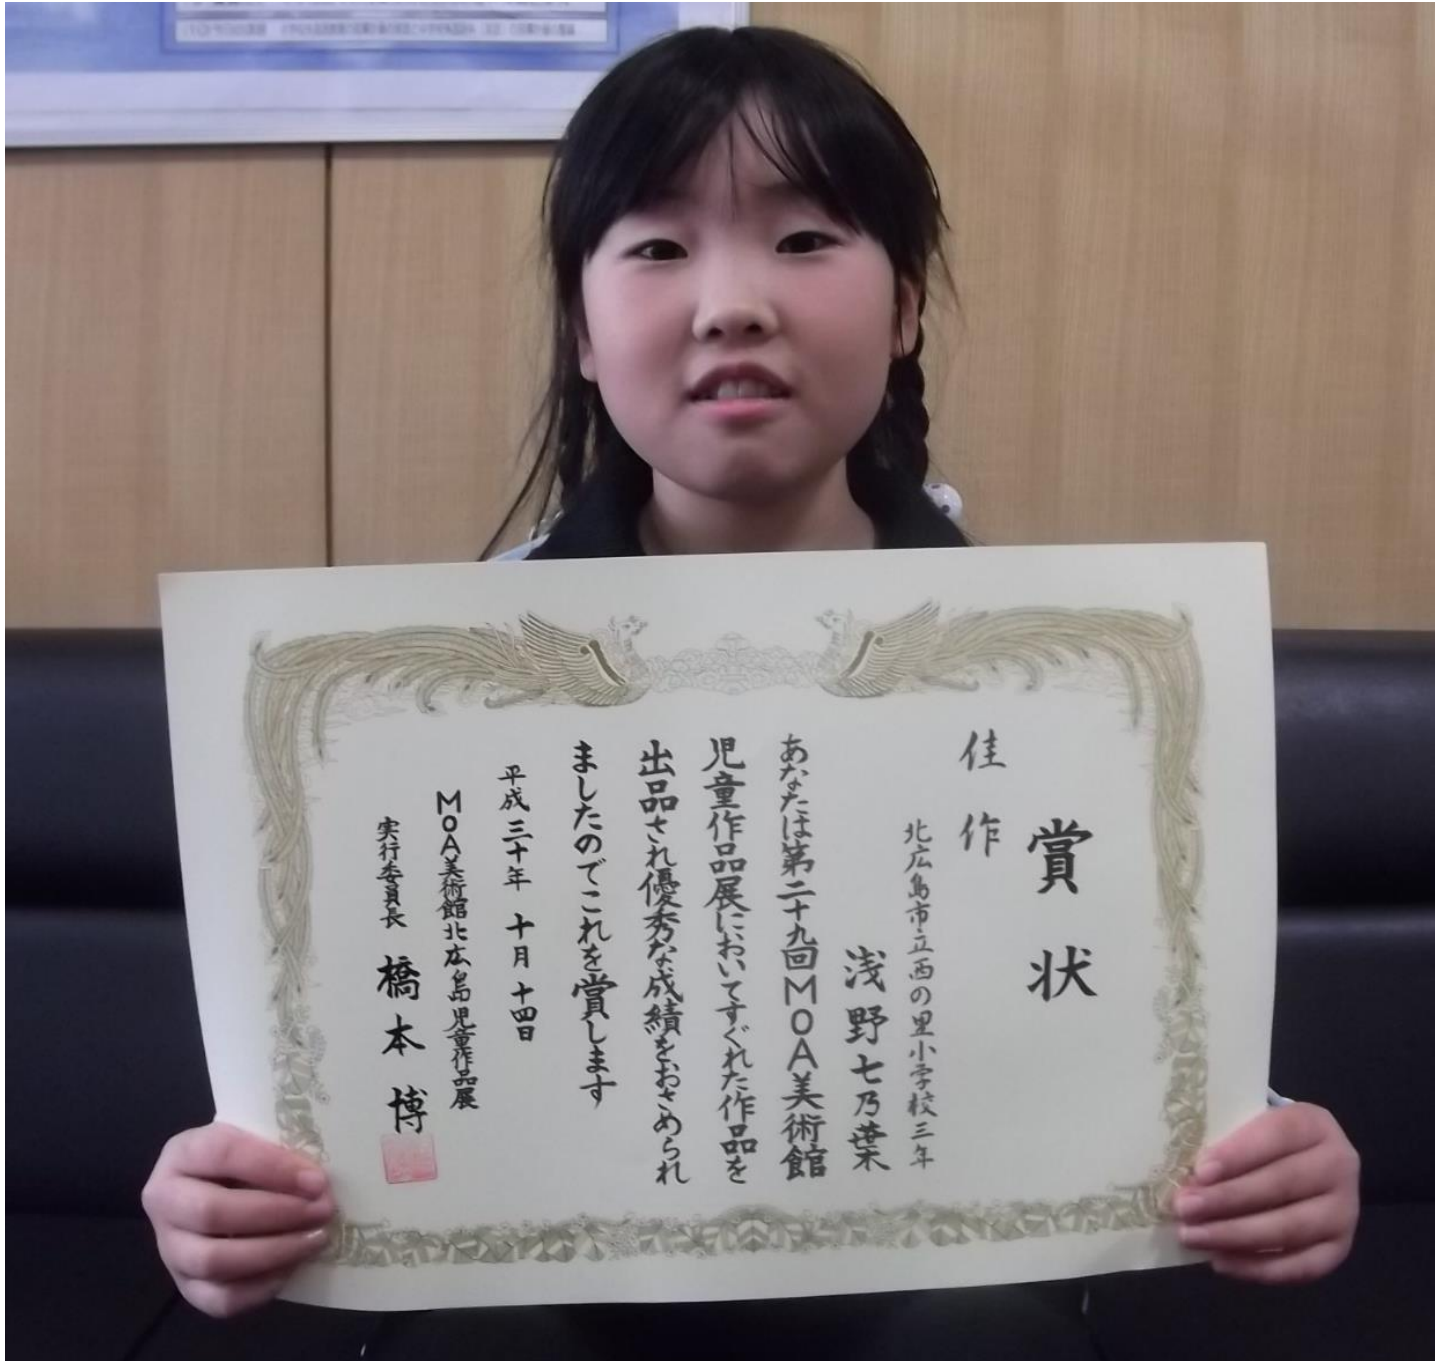 賞状
佳作
北広島市立西の里小学校三年
浅野七乃葉
あなたは第二十九回MOA美術館
児童作品展においてすぐれた作品を
出品され優秀な成績をおさめられ
ましたのでこれを賞します
平成三十年 十月 十四日
MOA美術館北広島児童作品展
実行委員長 橋本博